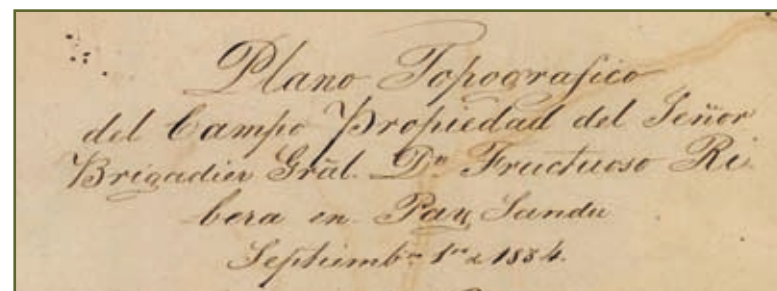 Plano Topografico
del Campo Propiedad del Señor
Brigadier Grãl. Dn Fructuoso Ri
bera en Pay Sandu
Septiembre 1ro de 1834.